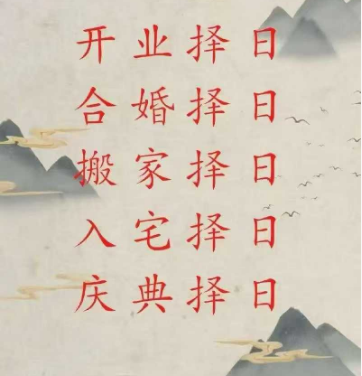 开业择日
合婚择日
搬家择日
入宅择日
庆典择日